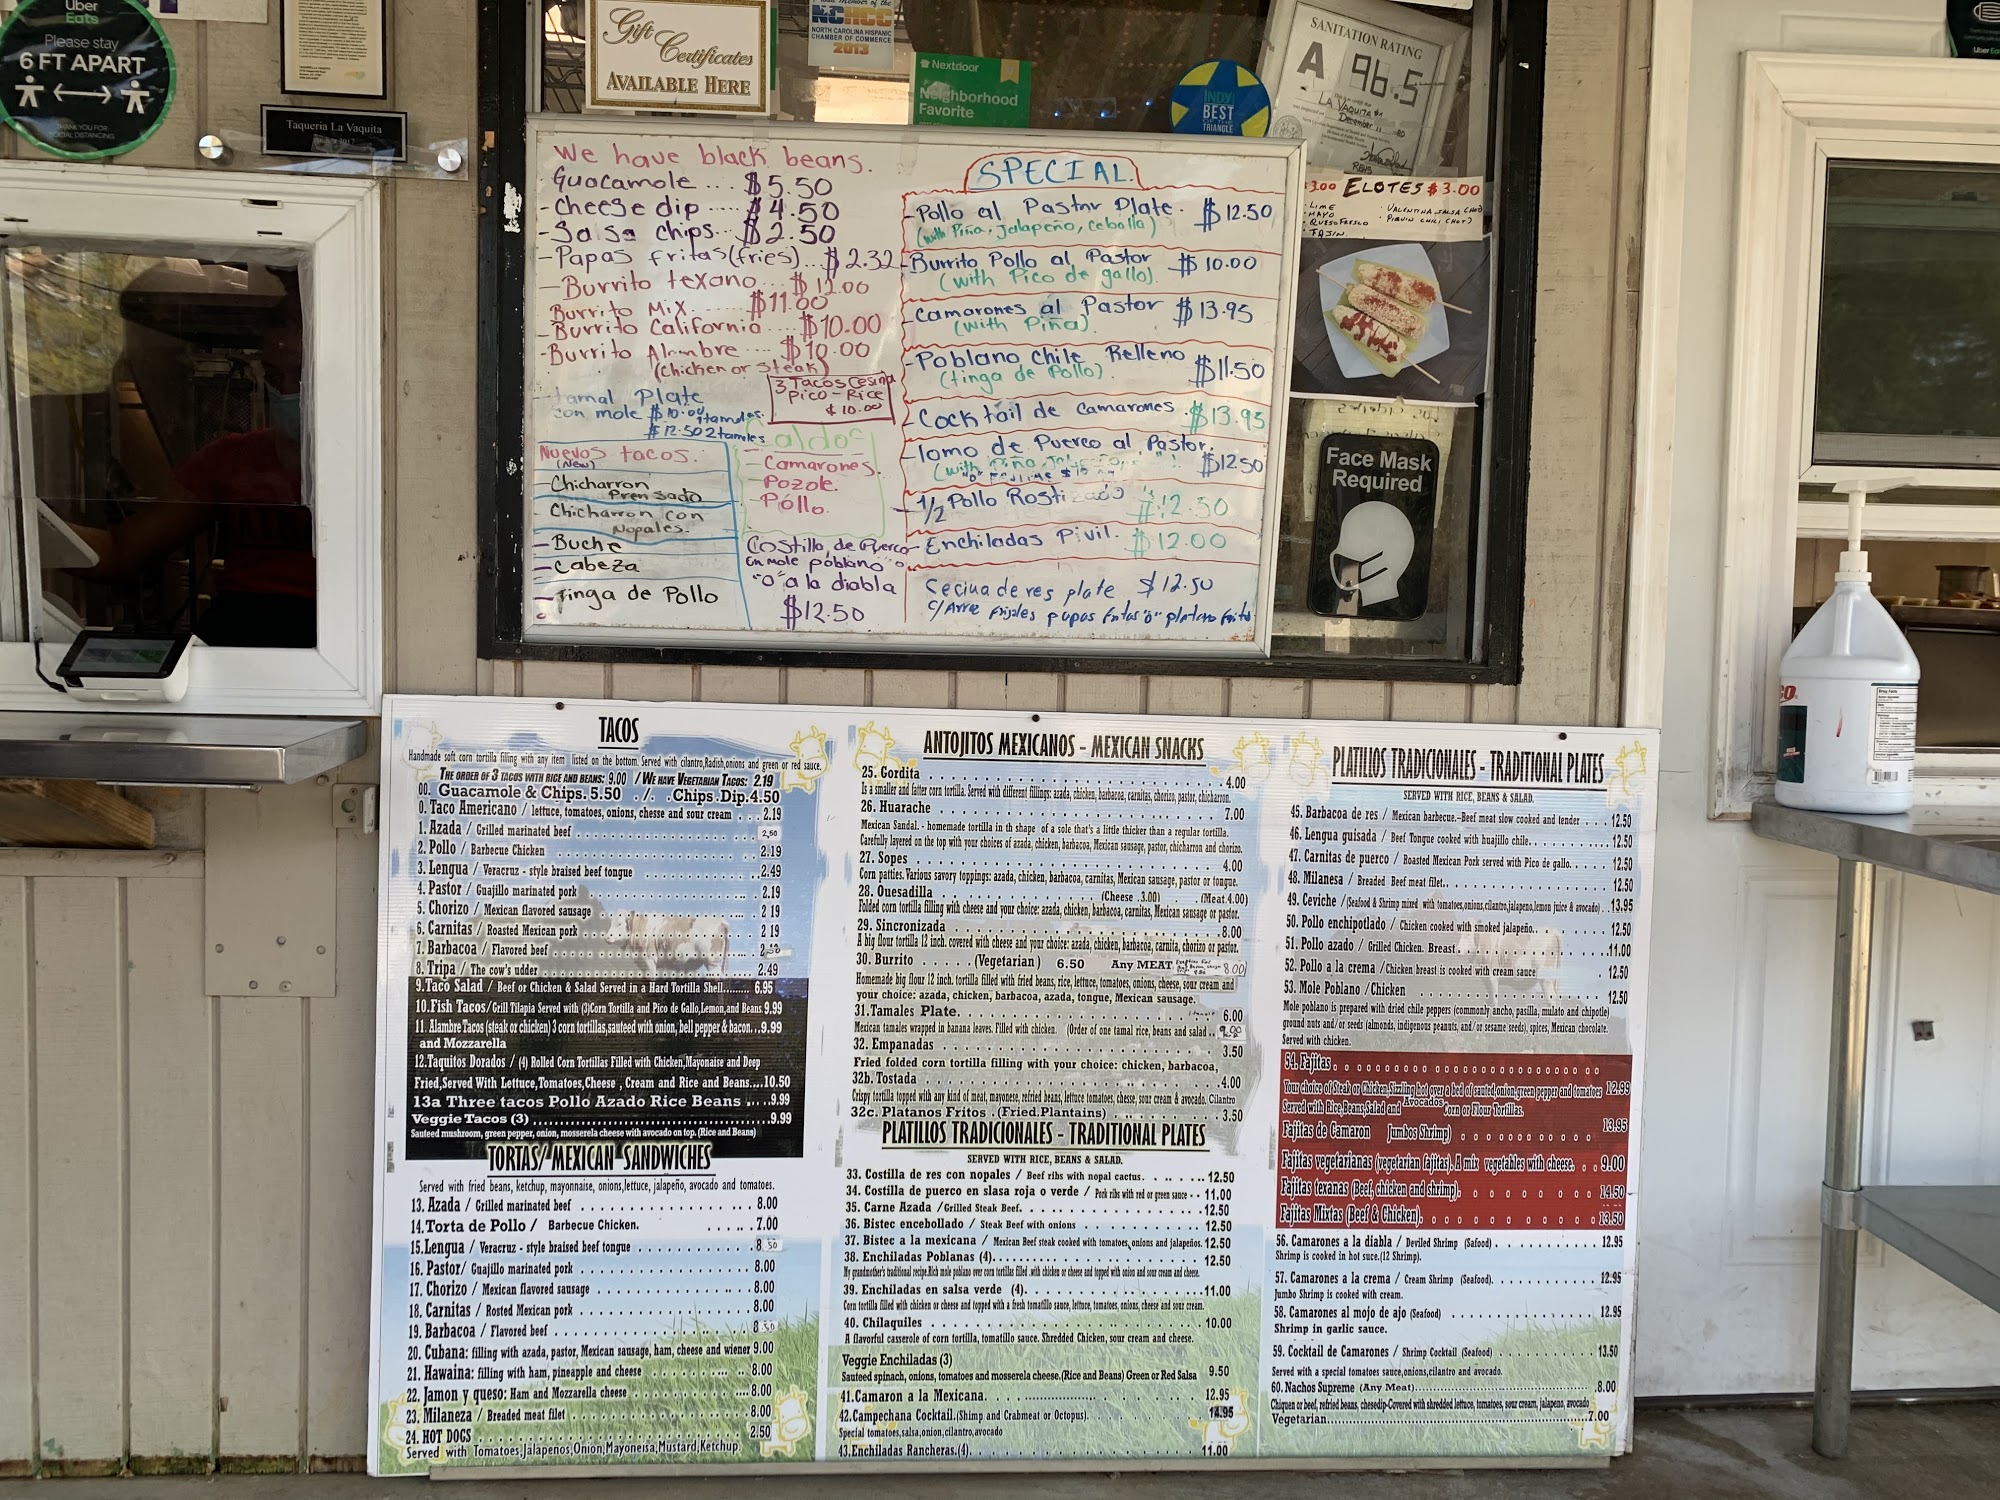 Uber
Eats
Please stay
6 FT APART
THANK YOU FOR
SOCIAL DISTANCING
Taqueria La Vaquita
Gift Certificates
AVAILABLE HERE
NCHCC
NORTH CAROLINA HISPANIC
CHAMBER OF COMMERCE
2013
Nextdoor
Neighborhood
Favorite
INDY
BEST
OF THE
TRIANGLE
SANITATION RATING
A 96.5
LA VAQUITA #1
December 11
REHS
We have black beans.
Guacamole ... $5.50
- Cheese dip ..... $4.50
- Salsa chips... $2.50
- Papas fritas (fries) .. $2.32
- Burrito texano ... $12.00
Burrito Mix. ..... $11.00
- Burrito California .... $10.00
- Burrito Alambre .... $10.00
(Chicken or Steak)
- tamal Plate
con mole $10.00 1 tamales.
$12.50 2 tamales
3 Tacos Cesina
Pico - Rice
$10.00
Nuevos tacos.
(New)
- Chicharron
Prensado
- Chicharron con
Nopales.
- Buche
- Cabeza
- Tinga de Pollo
Caldos
- Camarones.
- Pozole.
- Pollo.
Costilla de Puerco
en mole poblano "o"
"O" a la diabla
$12.50
SPECIAL.
- Pollo al Pastor Plate. $12.50
(with Piña, Jalapeño, Cebolla)
- Burrito Pollo al Pastor $10.00
(with Pico de gallo).
- Camarones al Pastor $13.95
(with Piña).
- Poblano Chile Relleno $11.50
(tinga de Pollo)
- Cocktail de Camarones. $13.95
- Lomo de Puerco al Pastor. $12.50
- 1/2 Pollo Rostizado $12.50
- Enchiladas Pivil. $12.00
Cecina de res plate $12.50
c/ Arroz frijoles papas fritas "o" platano frito
$3.00 ELOTES $3.00
· LIME
· MAYO
· QUESO FRESCO
· TAJIN
· VALENTINA SALSA (HOT)
· PIQUIN CHILI (HOT)
Face Mask
Required
TACOS
Handmade soft corn tortilla filling with any item listed on the bottom. Served with cilantro,Radish,onions and green or red sauce.
THE ORDER OF 3 TACOS WITH RICE AND BEANS: 9.00 / WE HAVE VEGETARIAN TACOS: 2.19
00. Guacamole & Chips. 5.50 . /. .Chips.Dip.4.50
0. Taco Americano / lettuce, tomatoes, onions, chesse and sour cream . . . 2.19
1. Azada / Grilled marinated beef 2,50
2. Pollo / Barbecue Chicken 2.19
3. Lengua / Veracruz - style braised beef tongue 2.49
4. Pastor / Guajillo marinated pork 2.19
5. Chorizo / Mexican flavored sausage 2 19
6. Carnitas / Roasted Mexican pork 2 19
7. Barbacoa / Flavored beef 2.50
8. Tripa / The cow's udder 2.49
9.Taco Salad / Beef or Chicken & Salad Served in a Hard Tortilla Shell........ 6.95
10.Fish Tacos/Grill Tilapia Served with (3)Corn Tortilla and Pico de Gallo,Lemon,and Beans 9.99
11. Alambre Tacos (steak or chicken) 3 corn tortillas,sauteed with onion, bell pepper & bacon...9.99
and Mozzarella
12.Taquitos Dorados / (4) Rolled Corn Tortillas Filled with Chicken,Mayonaise and Deep
Fried,Served With Lettuce,Tomatoes,Cheese , Cream and Rice and Beans....10.50
13a Three tacos Pollo Azado Rice Beans .....9.99
Veggie Tacos (3) ........9.99
Sauteed mushroom, green pepper, onion, mosserela cheese with avocado on top. (Rice and Beans)
TORTAS/ MEXICAN SANDWICHES
Served with fried beans, ketchup, mayonnaise, onions,lettuce, jalapeño, avocado and tomatoes.
13. Azada / Grilled marinated beef 8.00
14.Torta de Pollo / Barbecue Chicken. 7.00
15.Lengua / Veracruz - style braised beef tongue 8.50
16. Pastor/ Guajillo marinated pork 8.00
17. Chorizo / Mexican flavored sausage 8.00
18. Carnitas / Rosted Mexican pork 8.00
19. Barbacoa / Flavored beef 8.50
20. Cubana: filling with azada, pastor, Mexican sausage, ham, cheese and wiener 9.00
21. Hawaina: filling with ham, pineapple and cheese 8.00
22. Jamon y queso: Ham and Mozzarella cheese 8.00
23. Milaneza / Breaded meat filet 8.00
24. HOT DOGS 2.50
Served with Tomatoes,Jalapenos,Onion,Mayoneisa,Mustard,Ketchup.
ANTOJITOS MEXICANOS - MEXICAN SNACKS
25. Gordita 4.00
Is a smaller and fatter corn tortilla. Served with different fillings: azada, chicken, barbacoa, carnitas, chorizo, pastor, chicharron.
26. Huarache 7.00
Mexican Sandal. - homemade tortilla in th shape of a sole that's a little thicker than a regular tortilla.
Carefully layered on the top with your choices of azada, chicken, barbacoa, Mexican sausage, pastor, chicharron and chorizo.
27. Sopes 4.00
Corn patties. Various savory toppings: azada, chicken, barbacoa, carnitas, Mexican sausage, pastor or tongue.
28. Quesadilla (Cheese .3.00) (Meat 4.00)
Folded corn tortilla filling with cheese and your choice: azada, chicken, barbacoa, carnitas, Mexican sausage or pastor.
29. Sincronizada 8.00
A big flour tortilla 12 inch. covered with cheese and your choice: azada, chicken, barbacoa, carnita, chorizo or pastor.
30. Burrito (Vegetarian) 6.50 Any MEAT 8.00
Homemade big flour 12 inch. tortilla filled with fried beans, rice, lettuce, tomatoes, onions, cheese, sour cream and
your choice: azada, chicken, barbacoa, azada, tongue, Mexican sausage.
31.Tamales Plate. 6.00
Mexican tamales wrapped in banana leaves. Filled with chicken. (Order of one tamal rice, beans and salad ..
32. Empanadas 3.50
Fried folded corn tortilla filling with your choice: chicken, barbacoa,
32b. Tostada 4.00
Crispy tortilla topped with any kind of meat, mayonese, refried beans, lettuce tomatoes, cheese, sour cream & avocado. Cilantro
32c. Platanos Fritos . (Fried.Plantains) 3.50
PLATILLOS TRADICIONALES - TRADITIONAL PLATES
SERVED WITH RICE, BEANS & SALAD.
33. Costilla de res con nopales / Beef ribs with nopal cactus. 12.50
34. Costilla de puerco en slasa roja o verde / Pork ribs with red or green sauce 11.00
35. Carne Azada /Grilled Steak Beef. 12.50
36. Bistec encebollado / Steak Beef with onions 12.50
37. Bistec a la mexicana / Mexican Beef steak cooked with tomatoes, onions and jalapeños. 12.50
38. Enchiladas Poblanas (4). 12.50
My grandmother's traditional recipe.Rich mole poblano over corn tortillas filled .with chicken or cheese and topped with onion and sour cream and cheese.
39. Enchiladas en salsa verde (4). 11.00
Corn tortilla filled with chicken or cheese and topped with a fresh tomatillo sauce, lettuce, tomatoes, onions, cheese and sour cream.
40. Chilaquiles 10.00
A flavorful casserole of corn tortilla, tomatillo sauce. Shredded Chicken, sour cream and cheese.
Veggie Enchiladas (3)
Sauteed spinach, onions, tomatoes and mosserela cheese.(Rice and Beans) Green or Red Salsa 9.50
41.Camaron a la Mexicana. 12.95
42.Campechana Cocktail.(Shimp and Crabmeat or Octopus). 14.95
Special tomatoes,salsa,onion,cilantro,avocado
43.Enchiladas Rancheras.(4). 11.00
PLATILLOS TRADICIONALES - TRADITIONAL PLATES
SERVED WITH RICE, BEANS & SALAD.
45. Barbacoa de res / Mexican barbecue.-Beef meat slow cooked and tender 12.50
46. Lengua guisada / Beef Tongue cooked with huajillo chile. 12.50
47. Carnitas de puerco / Roasted Mexican Pork served with Pico de gallo. 12.50
48. Milanesa / Breaded Beef meat filet.. 12.50
49. Ceviche /(Seafood & Shrimp mixed with tomatoes,onions,cilantro,jalapeno,lemon juice & avocado) . . 13.95
50. Pollo enchipotlado / Chicken cooked with smoked jalapeño.. 12.50
51. Pollo azado / Grilled Chicken. Breast 11.00
52. Pollo a la crema /Chicken breast is cooked with cream sauce 12.50
53. Mole Poblano /Chicken 12.50
Mole poblano is prepared with dried chile peppers (commonly ancho, pasilla, mulato and chipotle)
ground nuts and/or seeds (almonds, indigenous peanuts, and/or sesame seeds), spices, Mexican chocolate.
Served with chicken.
54. Fajitas
Your choice of Steak or Chicken,Sizzling hot over a bed of sauted,onion,green pepper and tomatoes 12.99
Served with Rice,Beans,Salad and Avocados Corn or Flour Tortillas.
Fajitas de Camaron Jumbos Shrimp) 13.95
Fajitas vegetarianas (vegetarian fajitas). A mix vegetables with cheese. 9.00
Fajitas texanas (Beef, chicken and shrimp). 14.50
Fajitas Mixtas (Beef & Chicken). 13.50
56. Camarones a la diabla / Deviled Shrimp (Safood) 12.95
Shrimp is cooked in hot suce.(12 Shrimp).
57. Camarones a la crema / Cream Shrimp (Seafood). 12.95
Jumbo Shrimp is cooked with cream.
58. Camarones al mojo de ajo (Seafood) 12.95
Shrimp in garlic sauce.
59. Cocktail de Camarones / Shrimp Cocktail (Seafood) 13.50
Served with a special tomatoes sauce,onions,cilantro and avocado.
60.Nachos Supreme (Any Meat) 8.00
Chiqken or beef, refried beans, chesedip-Covered with shredded lettuce, tomatoes, sour cream, jalapeno, avocado
Vegetarian 7.00